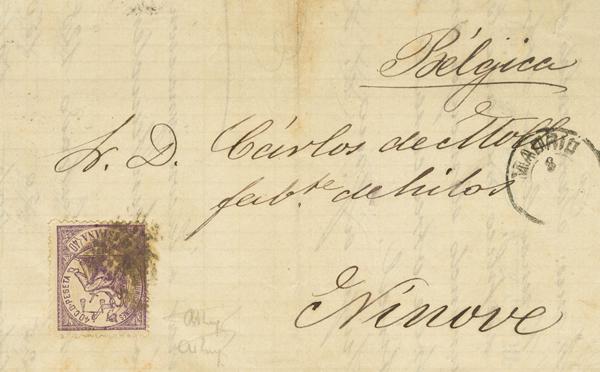 Bélgica
Sr. D. Cárlos de Moll
fabte de hilos
Ninove
MADRID
8
40 C. D PESETA